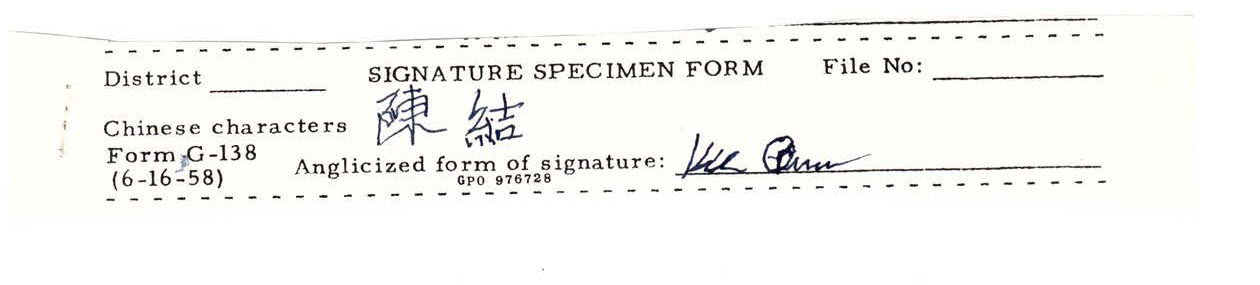 District SIGNATURE SPECIMEN FORM File No:
Chinese characters 陳 結
Form G-138
(6-16-58)
Anglicized form of signature:
GPO 976728